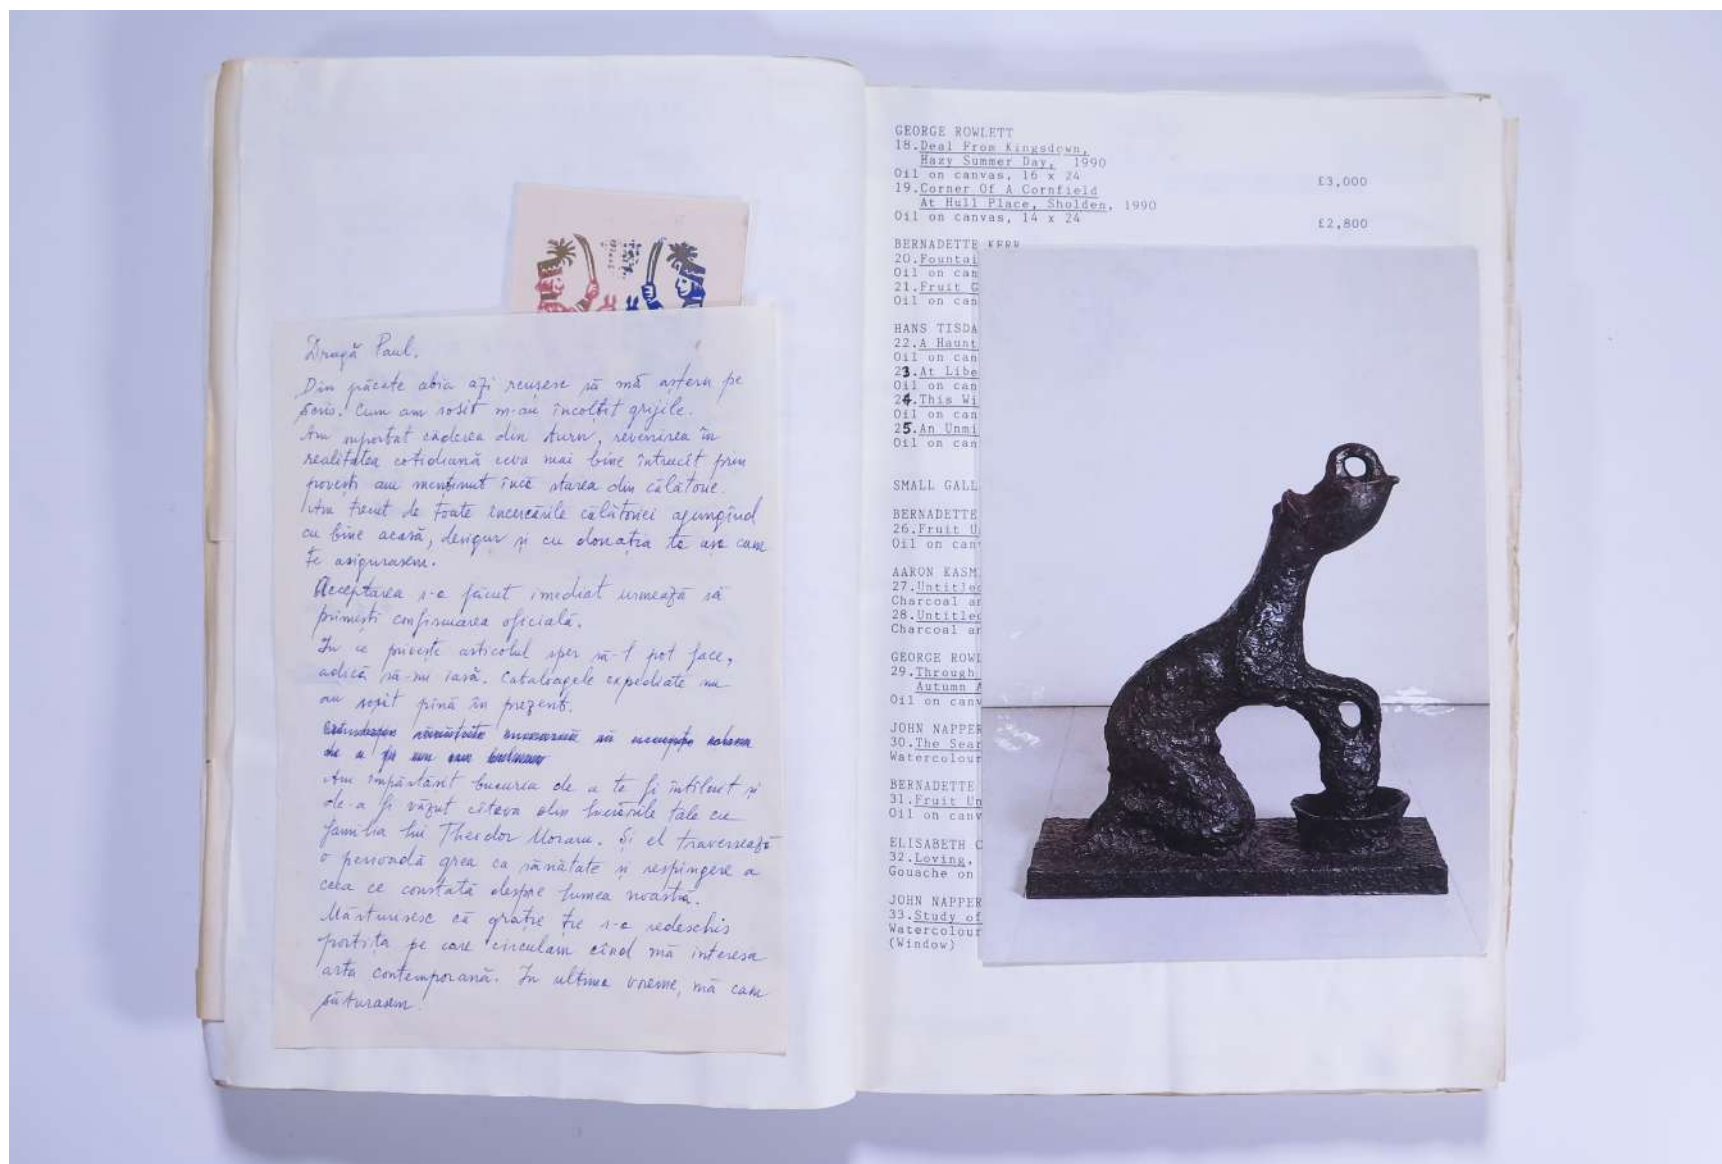 Dragă Paul.
Din păcate abia azi reușesc să mă aștern pe
scris. Cum am sosit m-au încolțit grijile.
Am suportat căderea din Turn, revenirea în
realitatea cotidiană ceva mai bine întrucît prin
povești am menținut încă starea din călătorie.
Am trecut de toate încercările călătoriei ajungînd
cu bine acasă, desigur și cu donația ta așa cum
te asigurasem.
Acceptarea s-a făcut imediat urmează să
primești confirmarea oficială.
In ce privește articolul sper să-l pot face,
adică să-mi iasă. Cataloagele expediate nu
au sosit pînă în prezent.
de a fi un om
Am împărtășit bucuria de a te fi întîlnit și
de-a fi văzut cîteva din lucrările tale cu
familia lui Theodor Moraru. Și el traversează
o perioadă grea ca sănătate și respingere a
ceea ce constată despre lumea noastră.
Mărturisesc că grație ție s-a redeschis
portița pe care circulam cînd mă interesa
arta contemporană. In ultima vreme, mă cam
săturasem.
GEORGE ROWLETT
18.Deal From Kingsdown,
Hazy Summer Day, 1990
Oil on canvas, 16 x 24 £3,000
19.Corner Of A Cornfield
At Hull Place, Sholden, 1990
Oil on canvas, 14 x 24 £2,800
BERNADETTE KERR
20.Fountai
Oil on can
21.Fruit G
Oil on can
HANS TISDA
22.A Haunt
Oil on can
23.At Libe
Oil on can
24.This Wi
Oil on can
25.An Unmi
Oil on can
SMALL GALL
BERNADETTE
26.Fruit U
Oil on can
AARON KASM
27.Untitled
Charcoal an
28.Untitled
Charcoal an
GEORGE ROWL
29.Through
Autumn A
Oil on canv
JOHN NAPPER
30.The Sear
Watercolour
BERNADETTE
31.Fruit Un
Oil on canv
ELISABETH C
32.Loving,
Gouache on
JOHN NAPPER
33.Study of
Watercolour
(Window)